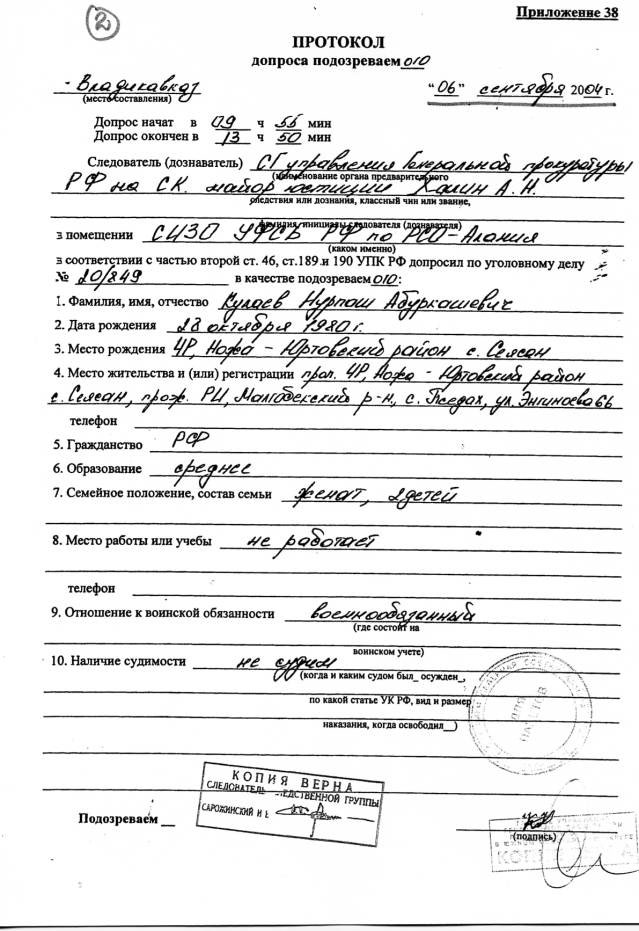 2
Приложение 38
ПРОТОКОЛ
допроса подозреваемого
Владикавказ "06" сентября 2004 г.
(место составления)
Допрос начат в 09 ч 55 мин
Допрос окончен в 13 ч 50 мин
Следователь (дознаватель) СГ управления Генеральной прокуратуры
(наименование органа предварительного
РФ на СК. майор юстиции А. Н.
следствия или дознания, классный чин или звание,
фамилия, инициалы следователя (дознавателя)
в помещении СИЗО УФСБ РФ по РСО-Алания
(каком именно)
в соответствии с частью второй ст. 46, ст.189 и 190 УПК РФ допросил по уголовному делу
№ 20/849 в качестве подозреваемого:
1. Фамилия, имя, отчество Кулаев Нурпаш Абуркашевич
2. Дата рождения 28 октября 1980 г.
3. Место рождения ЧР, Ножа - Юртовский район с. Сеясан
4. Место жительства и (или) регистрации проп. ЧР, Ножа - Юртовский район
с. Сеясан, прож. РИ, Малгобекский р-н, с. Пседах, ул. Энгиноева 66
телефон
5. Гражданство РФ
6. Образование среднее
7. Семейное положение, состав семьи женат, 2 детей
8. Место работы или учебы не работает
телефон
9. Отношение к воинской обязанности военнообязанный
(где состоит на
воинском учете)
10. Наличие судимости не судим
(когда и каким судом был_ осужден_,
по какой статье УК РФ, вид и размер
наказания, когда освободил__)
КОПИЯ ВЕРНА
СЛЕДОВАТЕЛЬ СЛЕДСТВЕННОЙ ГРУППЫ
САРОЖИНСКИЙ И
Подозреваем__
(подпись)